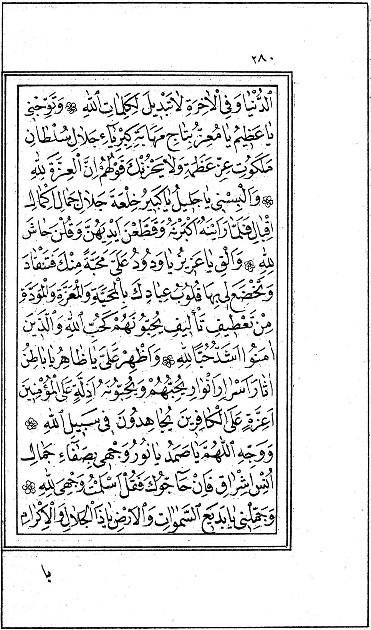 ٢٨٠
الدُّنْيَا وَفِي الْآخِرَةِ لَا تَبْدِيلَ لِكَلِمَاتِ اللّٰهِ ۞ وَتَوِّجْنِي
يَا عَظِيمُ يَا مُعِزُّ بِتَاجِ مَهَابَةِ كِبْرِيَاءِ جَلَالِ سُلْطَانِ
مَلَكُوتِ عِزِّ عَظَمَةِ وَلَا يَحْزُنْكَ قَوْلُهُمْ اِنَّ الْعِزَّةَ لِلّٰهِ
۞ وَاَلْبِسْنِي يَا جَلِيلُ يَا كَبِيرُ خِلْعَةَ جَلَالِ جَمَالِ كَمَالِ
اِقْبَالِ فَلَمَّا رَاَيْنَهُ اَكْبَرْنَهُ وَقَطَّعْنَ اَيْدِيَهُنَّ وَقُلْنَ حَاشَ
لِلّٰهِ ۞ وَاَلْقِ يَا عَزِيزُ يَا وَدُودُ عَلَيَّ مَحَبَّةً مِنْكَ فَتَنْقَادَ
وَتَخْضَعَ لِي بِهَا قُلُوبُ عِبَادِكَ بِالْمَحَبَّةِ وَالْمَعَزَّةِ وَالْمَوَدَّةِ
مِنْ تَعْطِيفِ تَأْلِيفِ يُحِبُّونَهُمْ كَحُبِّ اللّٰهِ وَالَّذِينَ
اٰمَنُوا اَشَدُّ حُبًّا لِلّٰهِ ۞ وَاَظْهِرْ عَلَيَّ يَا ظَاهِرُ يَا بَاطِنُ
اٰثَارَ اَسْرَارِ اَنْوَارِ يُحِبُّهُمْ وَيُحِبُّونَهُ اَذِلَّةٍ عَلَى الْمُؤْمِنِينَ
اَعِزَّةٍ عَلَى الْكَافِرِينَ يُجَاهِدُونَ فِي سَبِيلِ اللّٰهِ ۞
وَوَجِّهِ اللّٰهُمَّ يَا صَمَدُ يَا نُورُ وَجْهِي بِصَفَاءِ جَمَالِ
اُنْسِ اِشْرَاقِ فَاِنْ حَاجُّوكَ فَقُلْ اَسْلَمْتُ وَجْهِيَ لِلّٰهِ ۞
وَجَمِّلْنِي يَا بَدِيعَ السَّمٰوَاتِ وَالْاَرْضِ يَا ذَا الْجَلَالِ وَالْاِكْرَامِ
يا